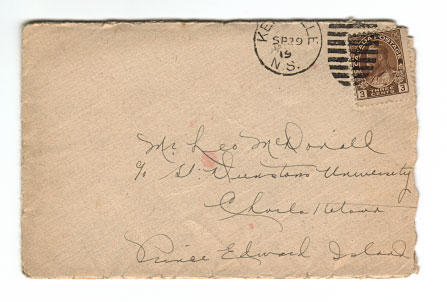 SP 29
19
N.S.
CANADA POSTAGE
3 THREE CENTS 3
Mr. Leo McDonall
c/o St. Dunstans University
Charlottetown
Prince Edward Island